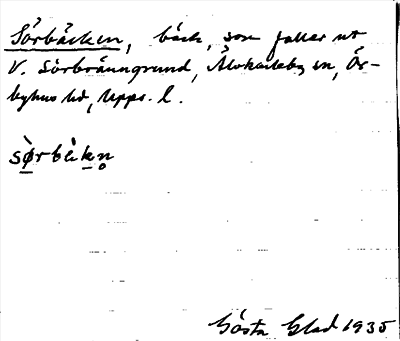 Sörbäcken, bäck, som faller ut
V. Sörbränngrund, Älvkarleby sn, Ör-
byhus hd, Upps. l.
sø̀rbèkn̥
Gösta Glad 1935